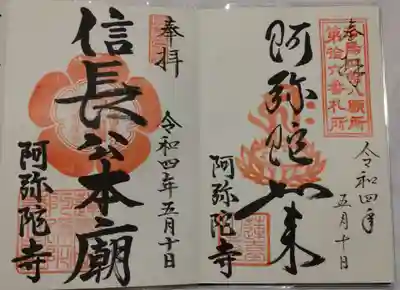 奉拝
第拾六番札所
阿弥陀如来
令和四年
五月十日
阿弥陀寺
奉拝
信長公本廟
令和四年五月十日
阿弥陀寺